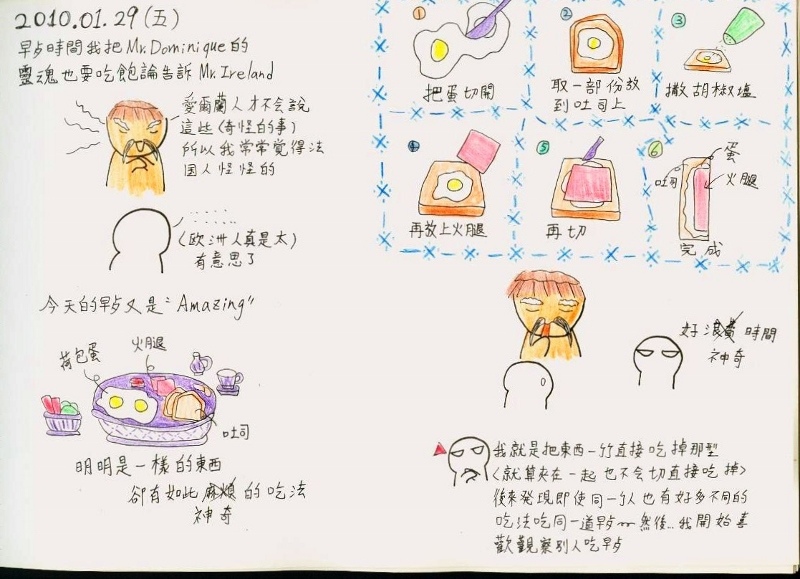 2010.01.29(五)
早点時間我把Mr.Dominique的
靈魂也要吃飽論告訴Mr.Ireland
愛爾蘭人才不會說
這些(奇怪的事)
所以我常常覺得法
国人怪怪的
(欧洲人真是太)
有意思了
今天的早点又是"Amazing"
荷包蛋
火腿
吐司
明明是一樣的東西
卻有如此麻煩的吃法
神奇
①
把蛋切開
②
取一部份放
到吐司上
③
撒胡椒塩
④
再放上火腿
⑤
再切
⑥
蛋
吐司
火腿
完成
好浪費時間
神奇
我就是把東西一个个直接吃掉那型
<就算夾在一起也不會切直接吃掉>
後來發現即使同一个人也有好多不同的
吃法吃同一道早点~然後..我開始喜
歡觀察別人吃早点